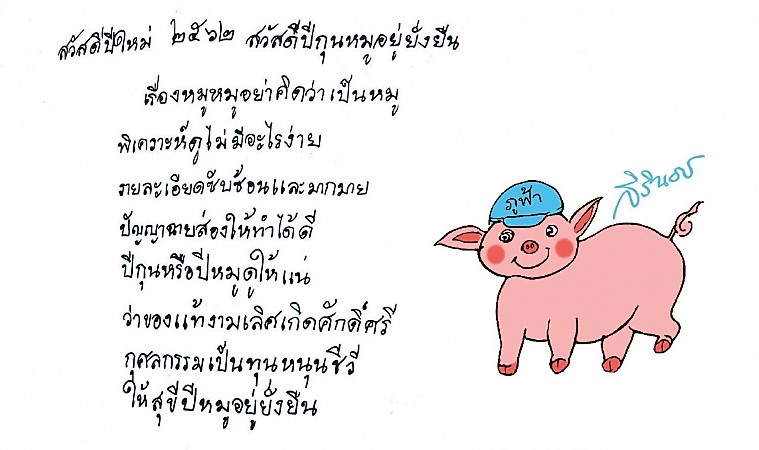 สวัสดีปีใหม่ ๒๕๖๒ สวัสดีปีกุนหมูอยู่ยั่งยืน
เรื่องหมูหมูอย่าคิดว่าเป็นหมู
พิเคราะห์ดูไม่มีอะไรง่าย
รายละเอียดซับซ้อนและมากมาย
ปัญญาฉายส่องให้ทำได้ดี
ปีกุนหรือปีหมูดูให้แน่
ว่าของแท้งามเลิศเกิดศักดิ์ศรี
กุศลกรรมเป็นทุนหนุนชีวี
ให้สุขีปีหมูอยู่ยั่งยืน
ภูฟ้า
สิรินธร